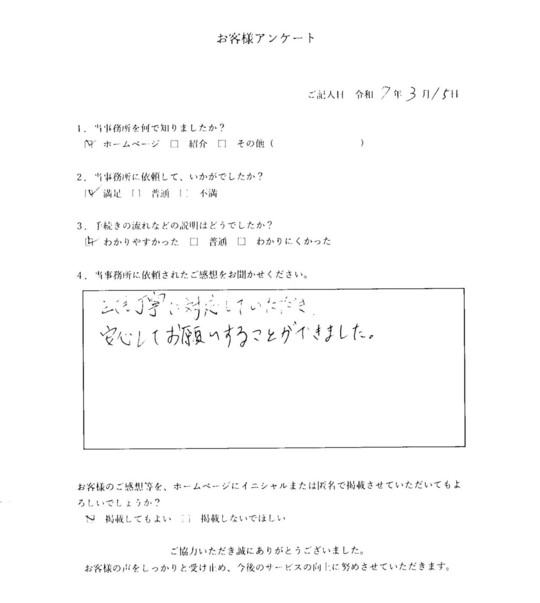 お客様アンケート
ご記入日 令和 7年 3月15日
1．当事務所を何で知りましたか？
☑ ホームページ □ 紹介 □ その他（　　　　　　　）
2．当事務所に依頼して、いかがでしたか？
☑ 満足 □ 普通 □ 不満
3．手続きの流れなどの説明はどうでしたか？
☑ わかりやすかった □ 普通 □ わかりにくかった
4．当事務所に依頼されたご感想をお聞かせください。
丁寧に対応していただき、
安心してお願いすることができました。
お客様のご感想等を、ホームページにイニシャルまたは匿名で掲載させていただいてもよ
ろしいでしょうか？
☑ 掲載してもよい □ 掲載しないでほしい
ご協力いただき誠にありがとうございました。
お客様の声をしっかりと受け止め、今後のサービスの向上に努めさせていただきます。